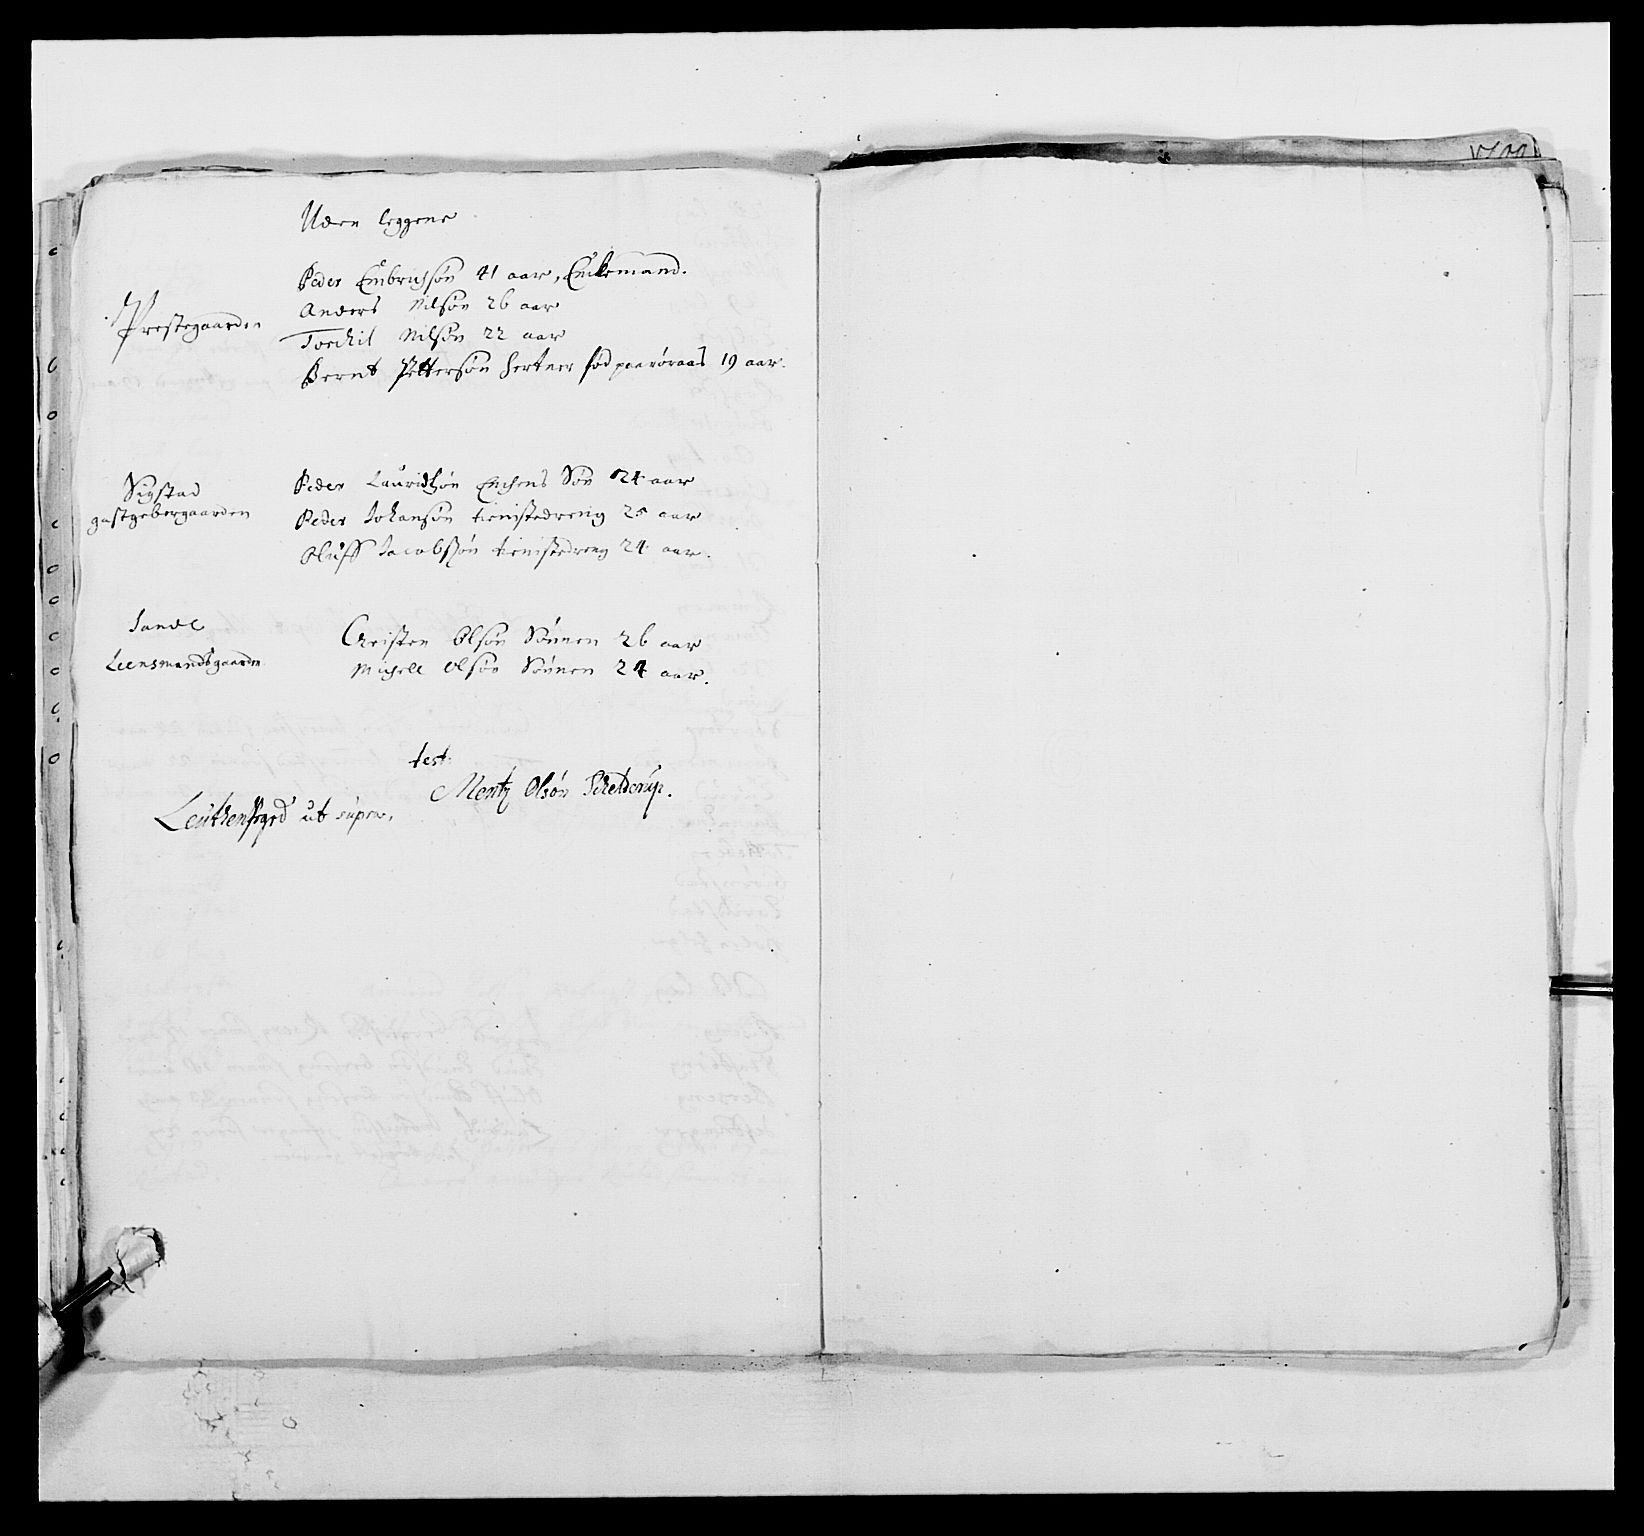 Uden leggene
Prestegaarden
Peder Embrichsøn 41 aar, Enkemand.
Anders Nilsøn 26 aar
Torchil Nilsøn 22 aar
Bernt Pettersøn hertner fød paa røraas 19 aar.
Sigstad
gastgebergaarden
Peder Lauridtzøn Enchens Søn 24 aar
Peder Johansøn tienistedreng 25 aar
Oluff Jacobsøn tienistedreng 24 aar.
Sande
Leensmandsgaarden
Christen Olsøn Sønnen 26 aar
Michell Olsøn Sønnen 24 aar.
test:
Mentz Olsøn Schelderup.
ut supra.